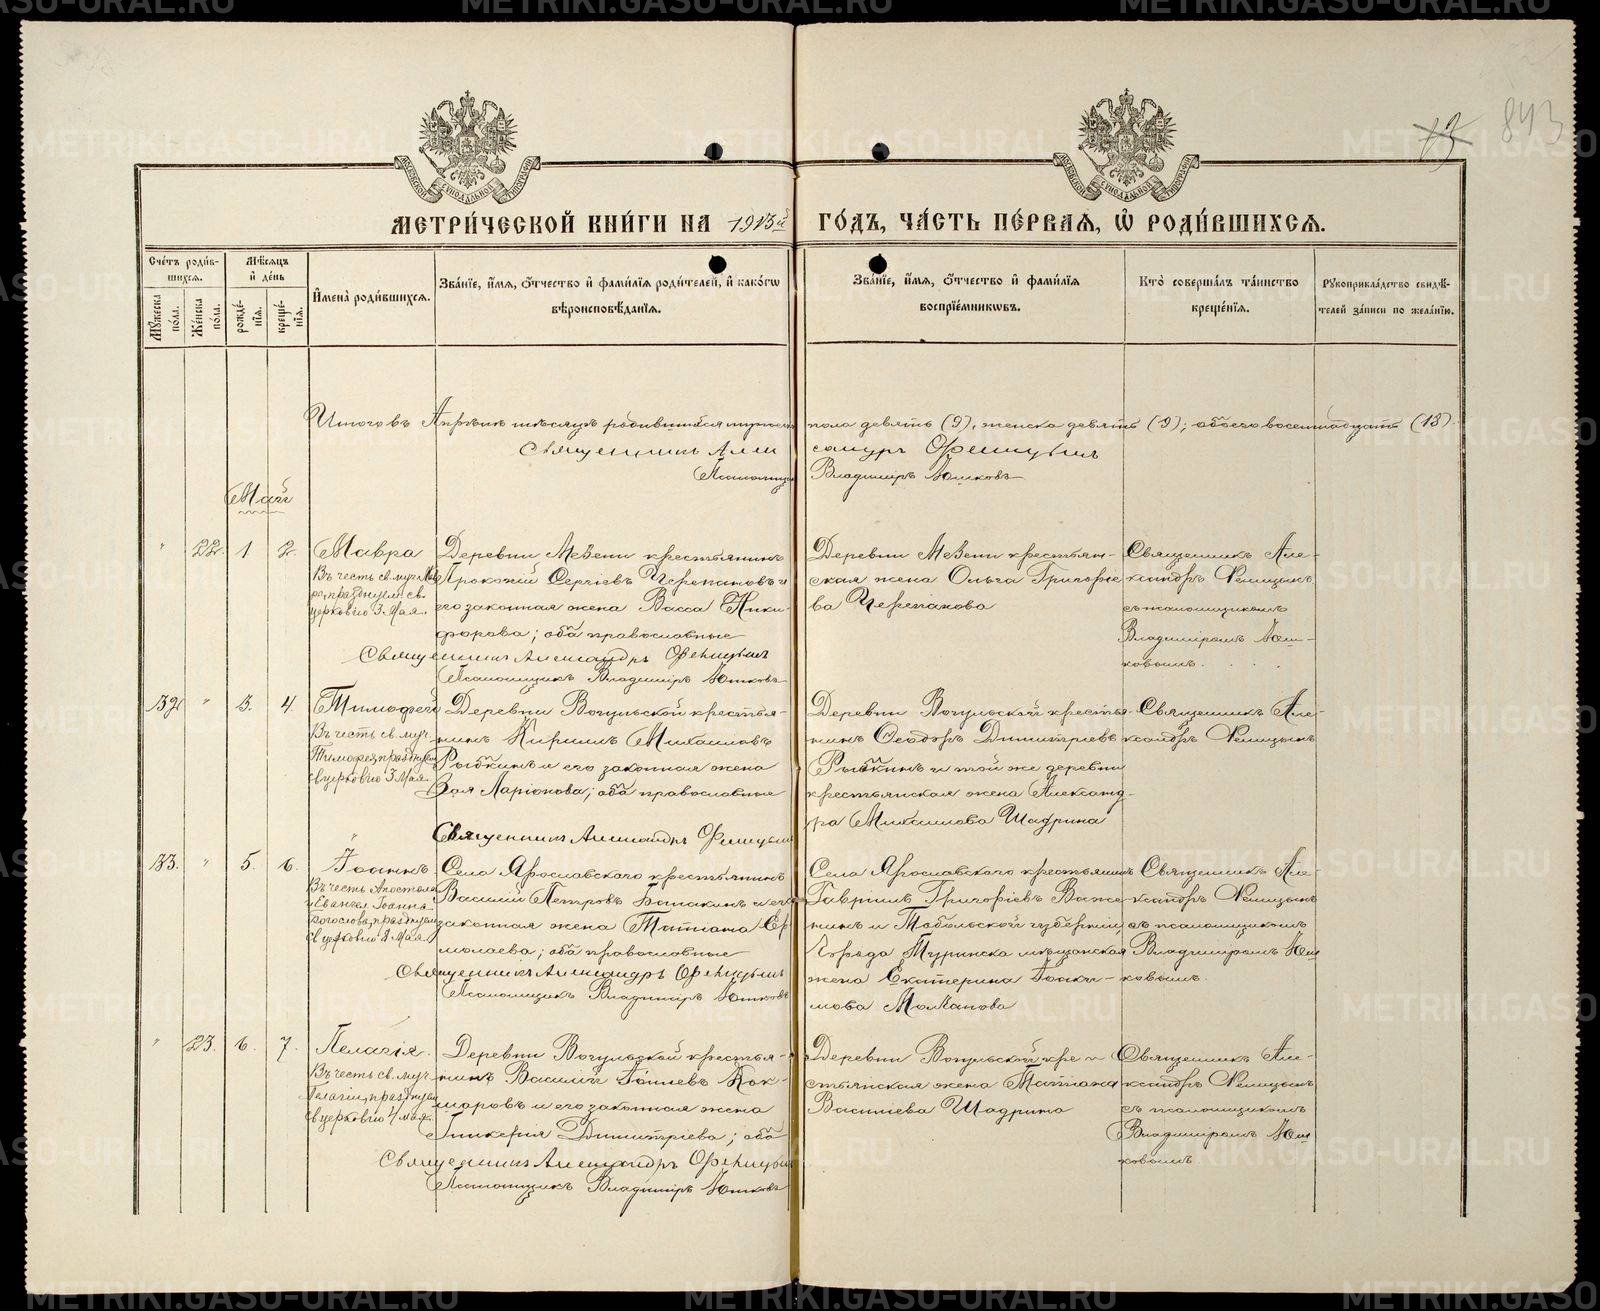 METRIKI.GASO-URAL.RU
843
МЕТРИ́ЧЕСКОЙ КНИ́ГИ НА 1913й ГО́ДЪ, ЧА́СТЬ ПЕ́РВАЯ, Ѿ РОДИ́ВШИХСЯ.
Сче́тъ роди́в-
шихся.
Мѣ́сяцъ
и҆ де́нь
Мꙋ́жеска по́ла.
Же́нска по́ла.
рожде́-
нїя.
креще́-
нїя.
И҆мена̀ роди́вшихся.
Зва́нїе, и҆́мя, ѻ҆́тчество и҆ фами́лїя роди́телей, и҆ како́гѡ
вѣроисповѣ́данїя.
Зва́нїе, и҆́мя, ѻ҆́тчество и҆ фами́лїя
воспрїе́мникѡвъ.
Кто̀ соверша́лъ та́инство
креще́нїя.
Рꙋкоприкла́дство свидѣ́-
телей за́писи по жела́нїю.
Итого въ Апрѣлѣ мѣсяцѣ родившихся мужеска пола девять (9), женска девять (9); обоего восемнадцать (18)
Священникъ Александръ Фелицынъ
Псаломщикъ Владимiръ Юшковъ
Май
" 22. 1 2. Мавра
Въ честь св. муч. Мав-
ры, празднуем. св.
церковiю 3 Мая.
Деревни Мезени крестьянинъ
Прокопiй Сергѣевъ Черепановъ и
его законная жена Васса Ники-
форова; оба православные
Священникъ Александръ Фелицынъ
Псаломщикъ Владимiръ Юшковъ
Деревни Мезени крестьян-
ская жена Ольга Григорье-
ва Черепанова
Священникъ Але-
ксандръ Фелицынъ
съ псаломщикомъ
Владимiромъ Юш-
ковымъ.
32. " 3. 4. Тимофей
Въ честь св. муч.
Тимофея, празднуем.
св. церковiю 3 Мая.
Деревни Вогульской крестья-
нинъ Кириллъ Михаиловъ
Рыбкинъ и его законная жена
Зоя Ларiонова; оба православные
Священникъ Александръ Фелицынъ
Деревни Вогульской крестья-
нинъ Ѳеодоръ Димитрiевъ
Рыбкинъ и той же деревни
крестьянская жена Александ-
ра Михаилова Шадрина
Священникъ Але-
ксандръ Фелицынъ
33. " 5. 6. Iоаннъ
Въ честь Апостола
и Евангел. Iоанна
Богослова, празднуем.
св. церковiю 8 Мая.
Села Ярославскаго крестьянинъ
Василiй Петровъ и его
законная жена Татiана Ер-
молаева; оба православные
Священникъ Александръ Фелицынъ
Псаломщикъ Владимiръ Юшковъ
Села Ярославскаго крестьянинъ
Гаврiилъ Григорiевъ Важе-
нинъ и Тобольской губернiи,
города Туринска мѣщанская
жена Екатерина
Молчанова
Священникъ Але-
ксандръ Фелицынъ
съ псаломщикомъ
Владимiромъ Юш-
ковымъ.
" 23. 6. 7. Пелагiя.
Въ честь св. муч.
Пелагiи, празднуем.
св. церковiю 4 мая.
Деревни Вогульской крестья-
нинъ Василiй
и его законная жена
Гликерiя Димитрiева; оба
Священникъ Александръ Фелицынъ
Псаломщикъ Владимiръ Юшковъ
Деревни Вогульской кре-
стьянская жена Татiана
Василiева Шадрина
Священникъ Але-
ксандръ Фелицынъ
съ псаломщикомъ
Владимiромъ Юш-
ковымъ